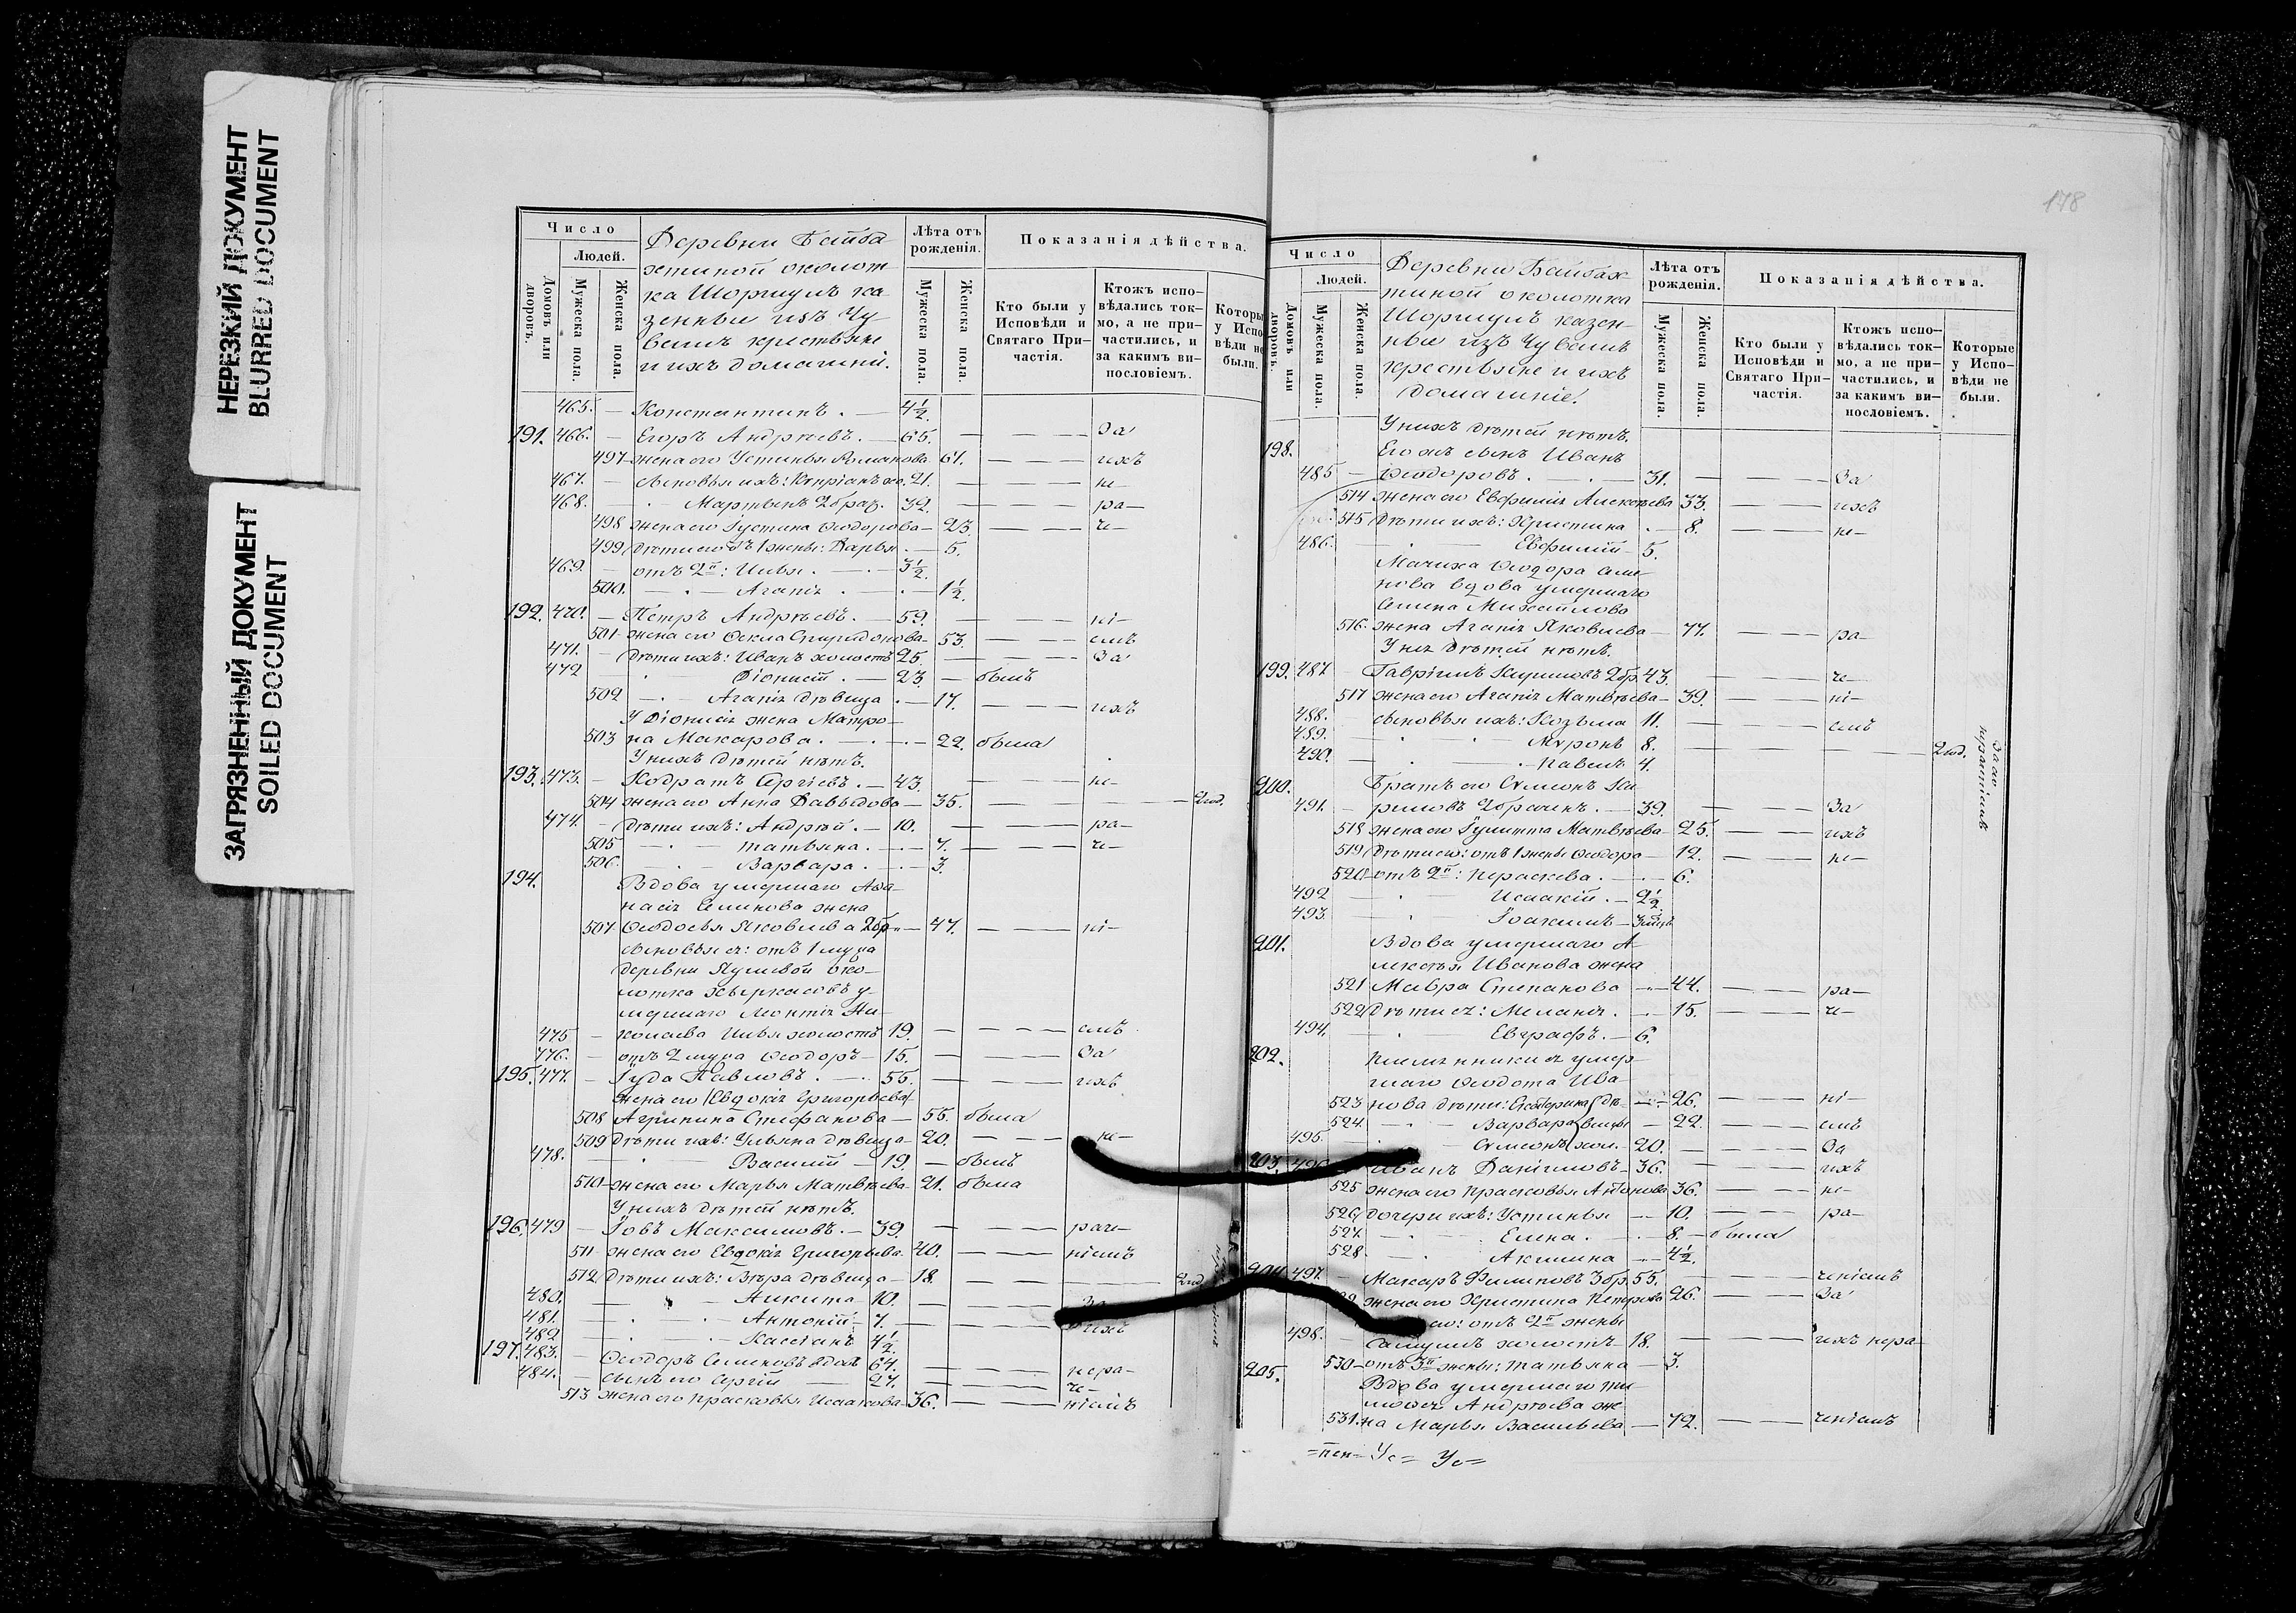 НЕРЕЗКИЙ ДОКУМЕНТ
BLURRED DOCUMENT
ЗАГРЯЗНЕННЫЙ ДОКУМЕНТ
SOILED DOCUMENT
Число
Людей.
Домовъ или дворовъ.
Мужеска пола.
Женска пола.
Деревни Байба
хтиной околот
ка Шоршулъ ка
зенные изъ Чу
вашъ крестьяне
и ихъ домашніи.
Лѣта отъ рожденія.
Мужеска пола.
Женска пола.
Показанія дѣйства.
Кто были у Исповѣди и Святаго Причастія.
Ктожъ исповѣдались токмо, а не причастились, и за какимъ винословіемъ.
Которые у Исповѣди не были.
465. — Константинъ. — 4½.
191. 466. — Егоръ Андреевъ. — 65. — За
497 жена его Устинья Романова 61. — ихъ
467. — Сыновья ихъ: Кипріанъ хо. 21. — не—
468. — Мартынъ 2 браз. 32. — ра—
498 жена его Іустина Ѳеодорова — 23. — че—
499 дѣти его отъ 1 жены: Дарья. — 5.
469. — отъ 2й: Илья. — 3½.
500. — Агапія — 1½.
192. 470. — Петръ Андреевъ. — 59. — ні—
501 жена его Ѳекла Спиридонова — 53. — емъ
471. — дѣти ихъ: Иванъ холостъ 25. — За
472 Діонисій. — 23. — былъ
502 — Агапія дѣвица — 17. — ихъ
У Діонисія жена Матро—
503 на Макарова. — 22. была
У нихъ дѣтей нѣтъ.
193. 473. — Кодратъ Сергіевъ. — 43. — не—
504 жена его Анна Давыдова — 35. — 2 год.
474. — дѣти ихъ: Андрей. — 10. — ра—
505 — Татьяна. — 7. — че—
506. — Варвара. — 3.
194. Вдова умершаго Аѳа—
насія Семенова жена
507 Ѳеодосья Яковлева 2 бр — 47. — ні—
сыновья ея: отъ 1 мужа
деревни
околотка
умершаго Леонтія Ни
475 — колаева Илья холостъ 19. — емъ
476. — отъ 2 мужа Ѳеодоръ — 15. — За
195. 477. — Іуда Павловъ. — 55. — ихъ
жена его (Евдокія Григорьева)
508 Агрипина Стефанова — 55. была
509 дѣти ихъ: Ульяна дѣвица — 20. — не—
478. Василій — 19. — былъ
510 — жена его Марья Матвѣева 21. была
У нихъ дѣтей нѣтъ.
196. 479 — Іовъ Максимовъ. — 39. — раче—
511 — жена его Евдокія Григорьева 40. — ніемъ
512 дѣти ихъ: Вѣра дѣвица — 18. — 2 год
480. — Никита — 10. — За
481. — Антоній — 7. — ихъ
482 — Касіанъ 4½.
197. 483. — Ѳеодоръ Семеновъ вдов 64. — нера—
484. — сынъ его Сергій — 27. — че—
513 жена его Прасковья Исаакова 36. — ніемъ
178
Число
Людей.
Домовъ или дворовъ.
Мужеска пола.
Женска пола.
Деревни Байбах
тиной околотка
Шоршулъ казен—
ные изъ Чувашъ
крестьяне и ихъ
домашніе.
Лѣта отъ рожденія.
Мужеска пола.
Женска пола.
Показанія дѣйства.
Кто были у Исповѣди и Святаго Причастія.
Ктожъ исповѣдались токмо, а не причастились, и за какимъ винословіемъ.
Которые у Исповѣди не были.
У нихъ дѣтей нѣтъ.
198. Егожъ сынъ Иванъ
485 — Ѳеодоровъ. — 31. — За
514 жена его Евфимія Алексѣева 33. — ихъ
515 Дѣти ихъ: Христина — 8. — не—
486. — Евфимій — 5.
Мачиха Ѳеодора Семе—
нова вдова умершаго
Семена Михайлова
516. жена Агапія Яковлева — 77. — ра—
У нея дѣтей нѣтъ.
199. 487 — Гавріилъ Кириловъ 2 бр. 43. — че—
517 жена его Агапія Матвѣева — 39. — ні—
488. — сыновья ихъ: Козьма 11. — емъ
489. — Мѵронъ 8.
490. — Павелъ 4. — 2 год.
200. Братъ его Симеонъ Ки
491. — риловъ 2 браченъ. — 39. — За
518 жена его Іулитта Матвѣева — 25. — ихъ
519 Дѣти его: отъ 1 жены Ѳеодора — 12. — не—
520 — отъ 2й: Параскева. — 6.
492 — Исаакій. — 2½
493. — Іоакимъ — 3 мѣсц
201. Вдова умершаго А—
лексѣя Иванова жена
521 Мавра Степанова — 44. — ра—
522 Дѣти ея: Меланія. — 15. — че—
494. — Евграфъ. — 6.
202. Племянники ея умер—
шаго Ѳедота Ива—
523 нова дѣти: Екатерина дѣ — 26. — ні—
524 — Варвара вицы — 22. — емъ
495. — Симеонъ хол. — 20. — За
203. 496 Иванъ Даніиловъ — 36. — ихъ
525 жена его Прасковья Антонова 36. — не—
526 дочери ихъ: Устинья — 10. — ра—
527. — Елена. — 8. — была
528 — Акилина — 4½.
204 497. — Макаръ Филиповъ 3 бр. 55. — ченіемъ
жена его Христина Петрова 26. — За
его: отъ 2й жены
498. — Самуилъ холостъ — 18. — ихъ нера—
530 — отъ 3й жены: Татьяна — 3.
205. Вдова умершаго Ти—
моѳея Андреева же
531. на Марья Васильева — 72. — ченіемъ